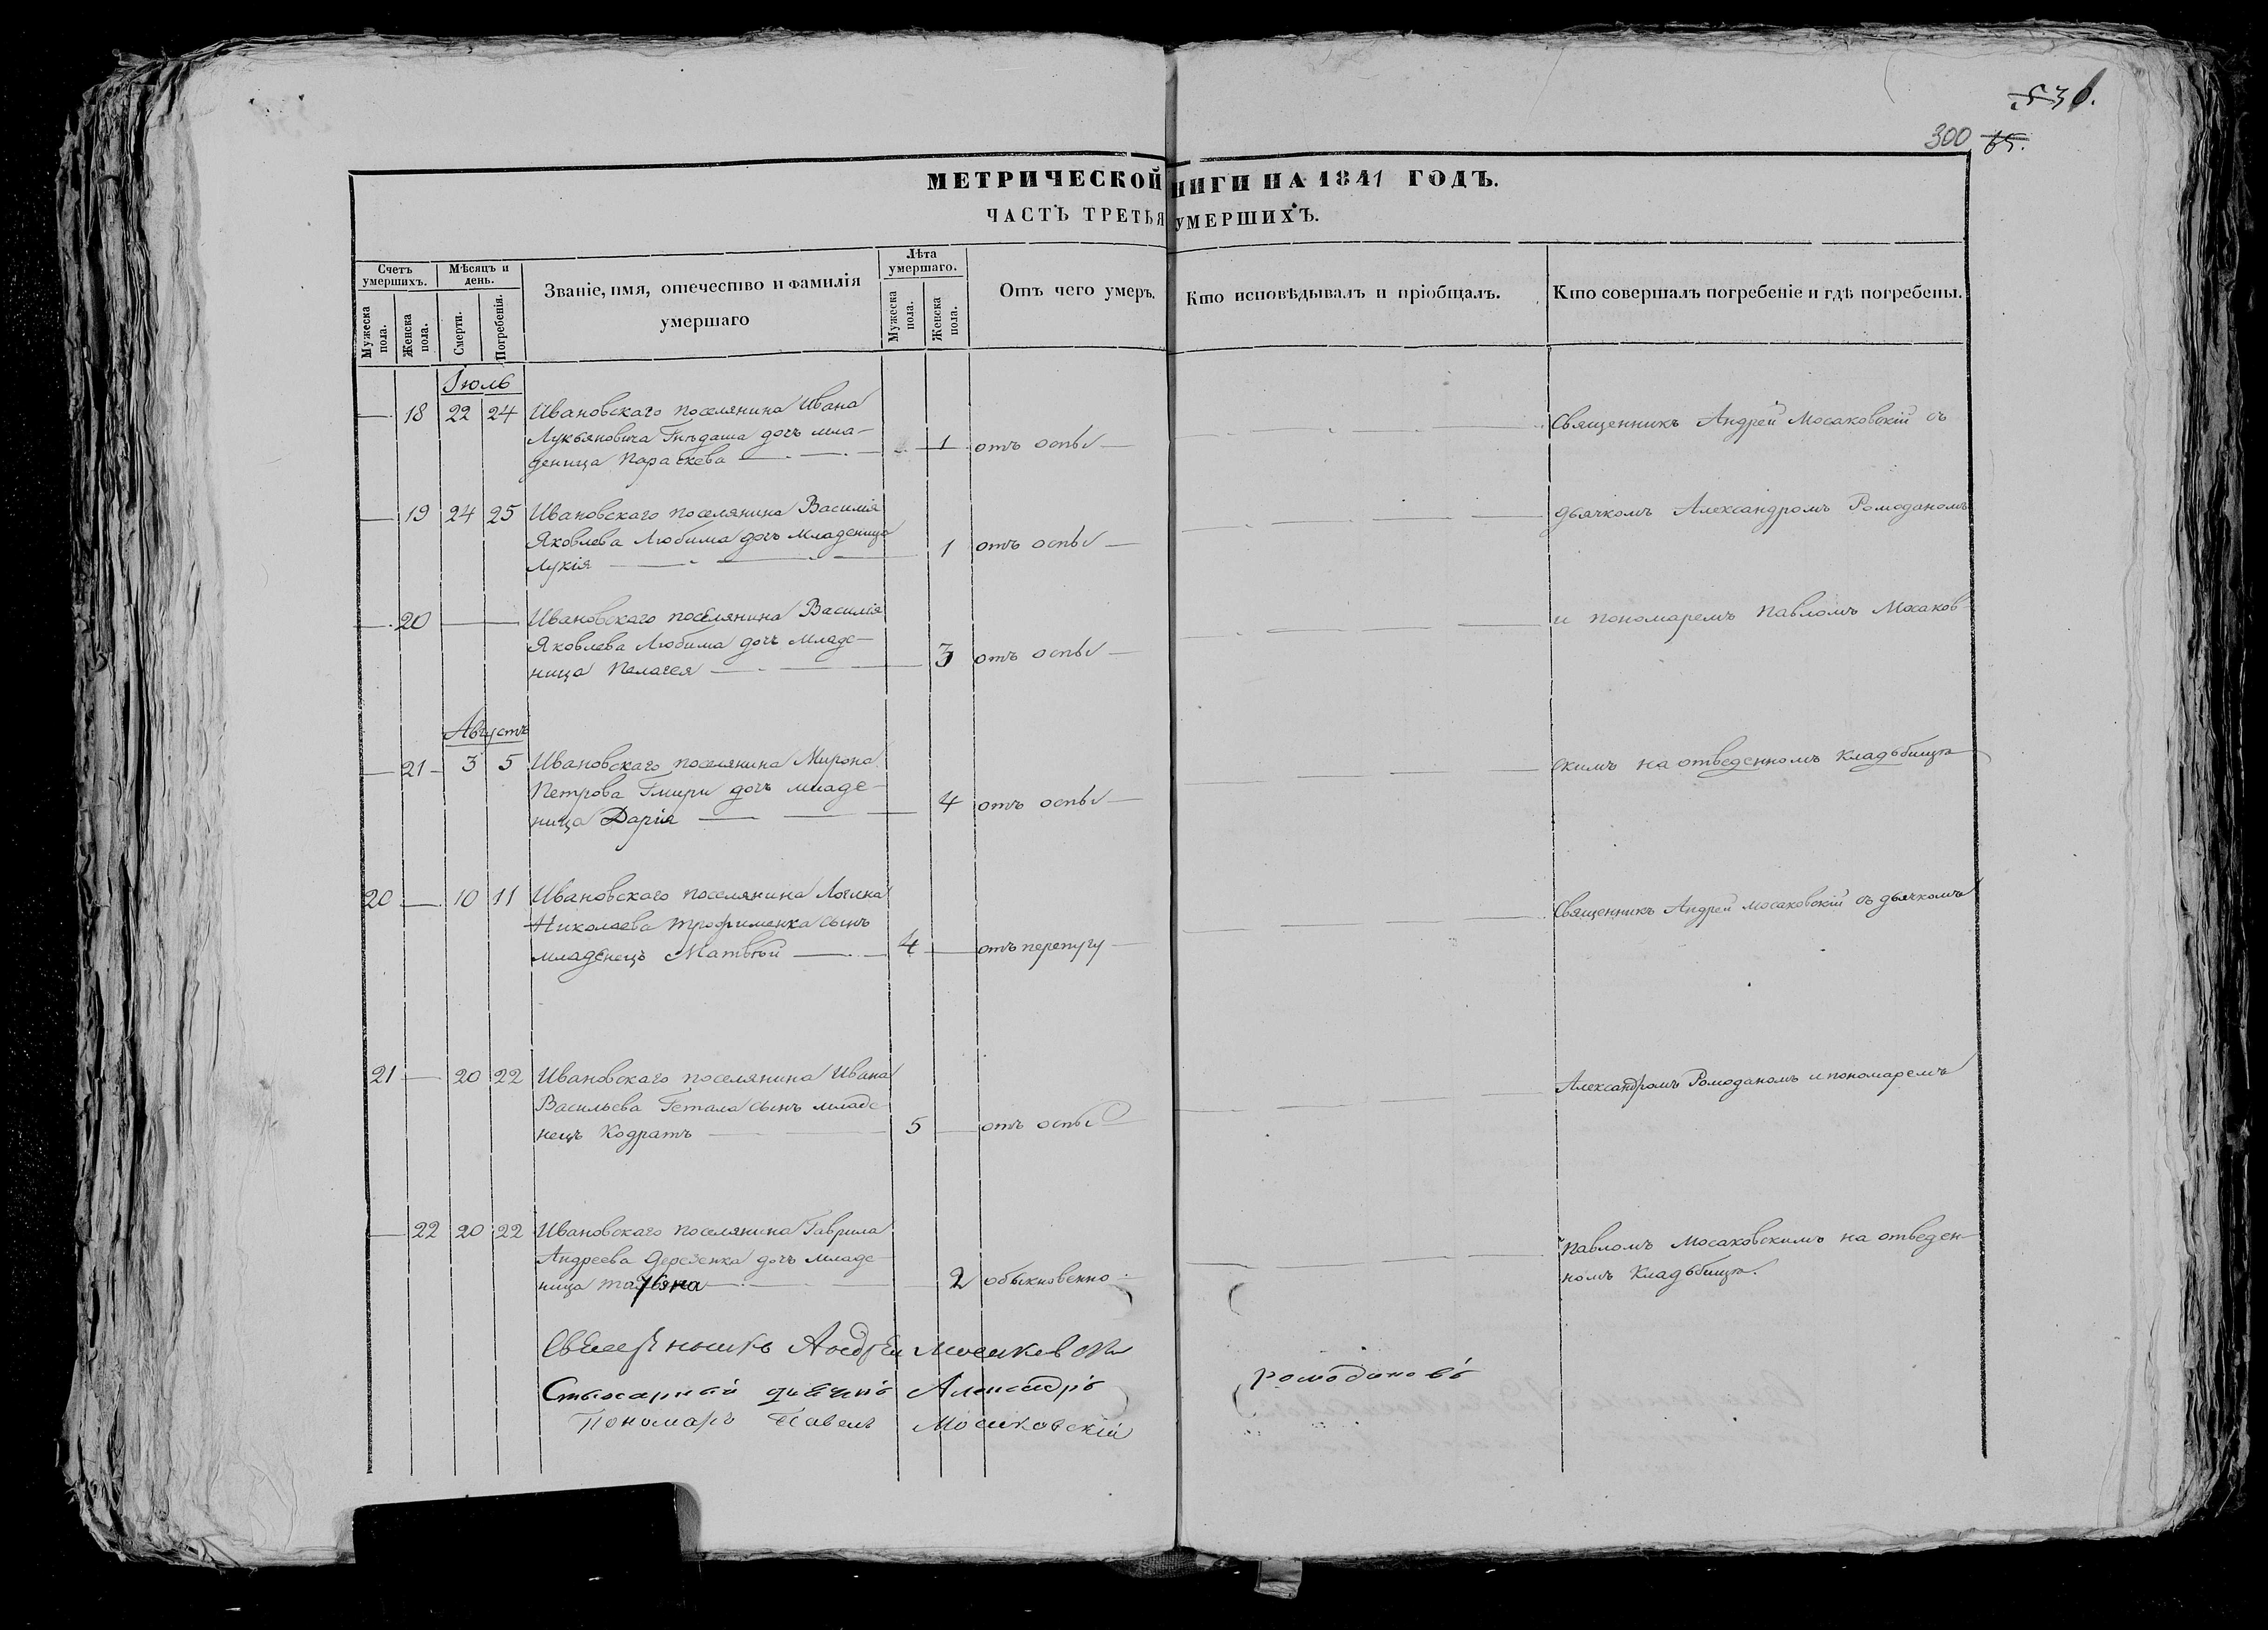 536.
300 65.
МЕТРИЧЕСКОЙ НИГИ НА 1841 ГОДЪ.
ЧАСТЬ ТРЕТЬЯ УМЕРШИХЪ.
Счетъ умершихъ.
Мужеска пола.
Женска пола.
Мѣсяцъ и день.
Смерти.
Погребенія.
Званіе, имя, отечество и фамилія
умершаго
Лѣта умершаго.
Мужеска пола.
Женска пола.
Отъ чего умеръ.
Кто исповѣдывалъ и пріобщалъ.
Кто совершалъ погребеніе и гдѣ погребены.
Іюль
18 22 24 Ивановскаго поселянина Ивана
Лукьяновича Гнѣдаша дочь мла-
деница Параскева 1 отъ оспы
Священникъ Андрей Мосаковскій съ
19 24 25 Ивановскаго поселянина Василія
Яковлева Любима дочь младеница
Лукія 1 отъ оспы
дьячкомъ Александромъ Ромоданомъ
20 Ивановскаго поселянина Василія
Яковлева Любима дочь младе-
ница Пелагея 3 отъ оспы
и пономаремъ Павломъ Мосаков-
Августъ
21 3 5 Ивановскаго поселянина Мирона
Петрова Гмири дочь младе-
ница Дарія 4 отъ оспы
скимъ на отведенномъ кладьбищѣ
20 10 11 Ивановскаго поселянина Логина
Николаева Трофименка сынъ
младенецъ Матвѣй 4 отъ перепугу
Священникъ Андрей Мосаковскій съ дьячкомъ
21 20 22 Ивановскаго поселянина Ивана
Васильева Гетала сынъ младе-
нецъ Кодратъ 5 отъ оспы
Александромъ Ромоданомъ и пономаремъ
22 20 22 Ивановскаго поселянина Гаврила
Андреева Дерезенка дочь младе-
ница Татьяна 2 обыкновенно
Павломъ Мосаковскимъ на отведен-
номъ кладьбищѣ.
Священникъ Андрей Мосаковскій
Стихарный дьячокъ Александръ Ромодановъ
Пономарь Павелъ Мосаковскій